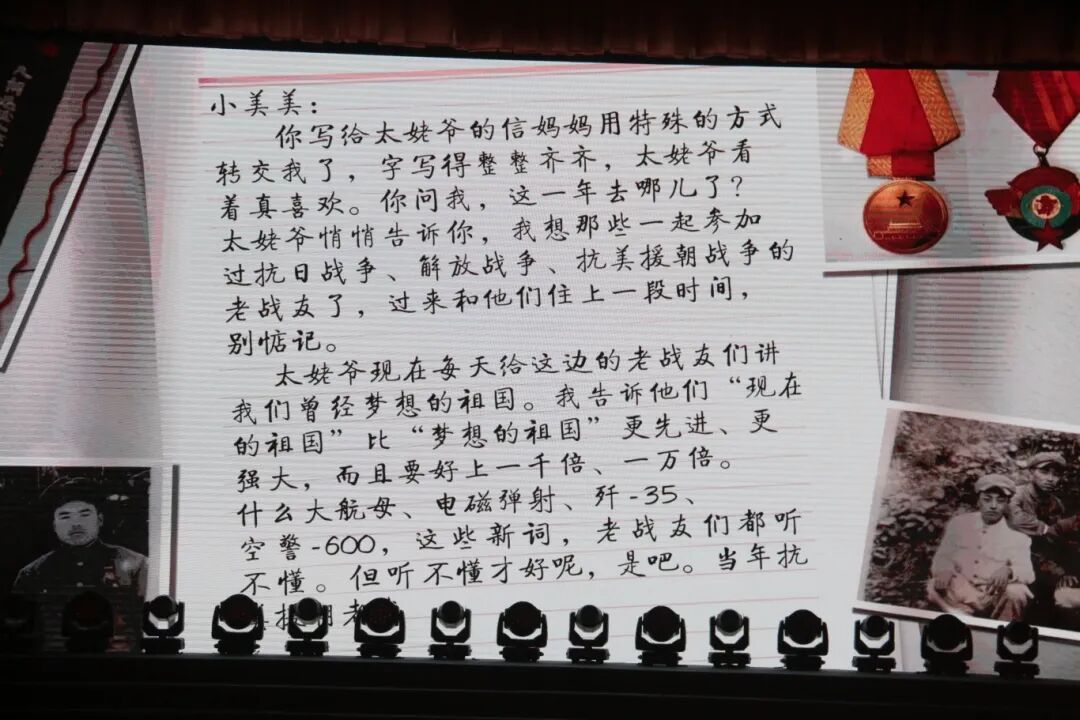 小美美：
你写给太姥爷的信妈妈用特殊的方式
转交我了，字写得整整齐齐，太姥爷看
着真喜欢。你问我，这一年去哪儿了？
太姥爷悄悄告诉你，我想那些一起参加
过抗日战争、解放战争、抗美援朝战争的
老战友了，过来和他们住上一段时间，
别惦记。
太姥爷现在每天给这边的老战友们讲
我们曾经梦想的祖国。我告诉他们“现在
的祖国”比“梦想的祖国”更先进、更
强大，而且要好上一千倍、一万倍。
什么大航母、电磁弹射、歼-35、
空警-600，这些新词，老战友们都听
不懂。但听不懂才好呢，是吧。当年抗